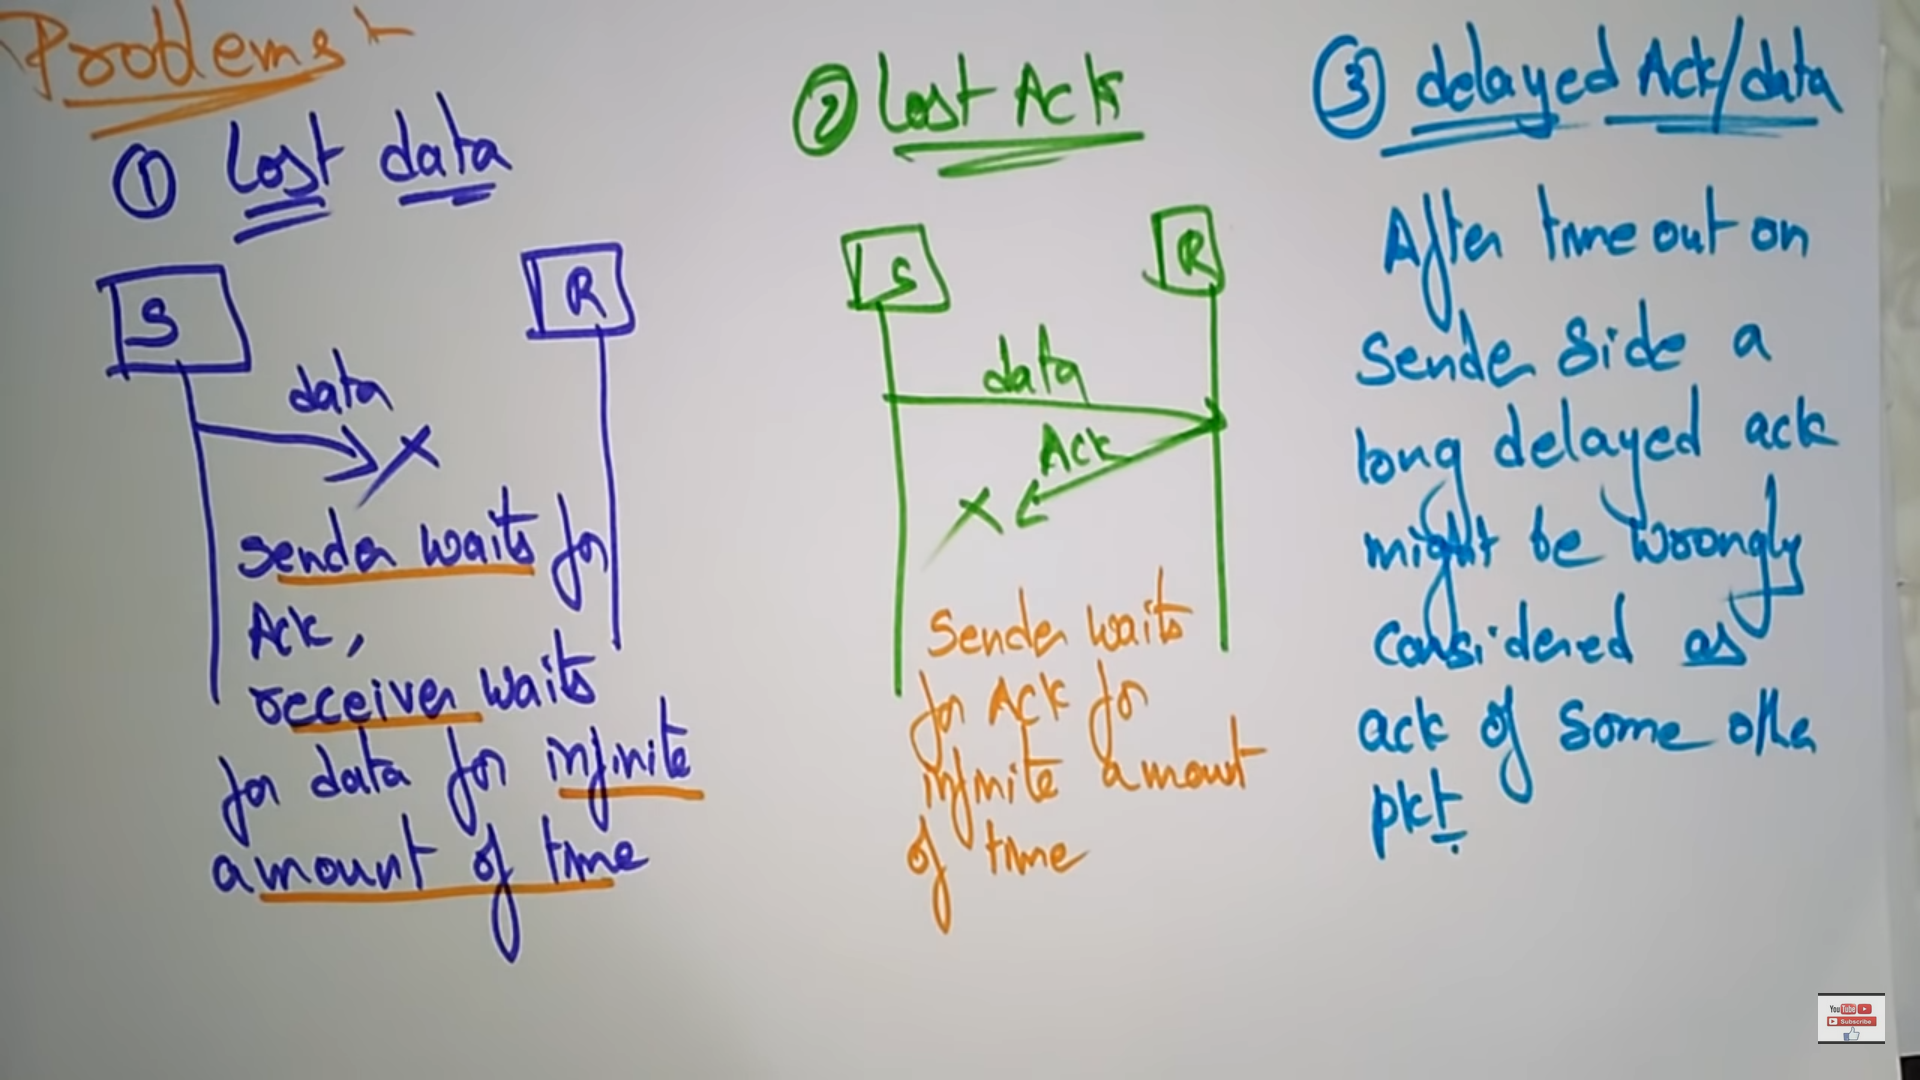 Problems:-
① Lost data
S
R
data
sender waits for
Ack,
receiver waits
for data for infinite
amount of time
② Lost Ack
S
R
data
Ack
Sender waits
for Ack for
infinite amount
of time
③ delayed Ack/data
After time out on
Sender Side a
long delayed ack
might be wrongly
considered as
ack of some other
pkt.
YouTube
Subscribe